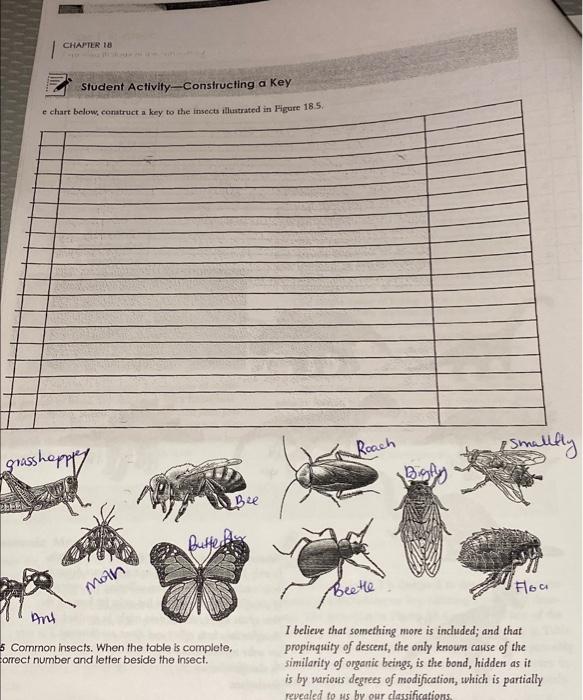 CHAPTER 18
Student Activity—Constructing a Key
e chart below, construct a key to the insects illustrated in Figure 18.5.
grasshopper
Bee
Roach
Bigfly
Smallfly
Moth
Butterfly
Beetle
Flea
Ant
5 Common insects. When the table is complete,
correct number and letter beside the insect.
I believe that something more is included; and that
propinquity of descent, the only known cause of the
similarity of organic beings, is the bond, hidden as it
is by various degrees of modification, which is partially
revealed to us by our classifications.